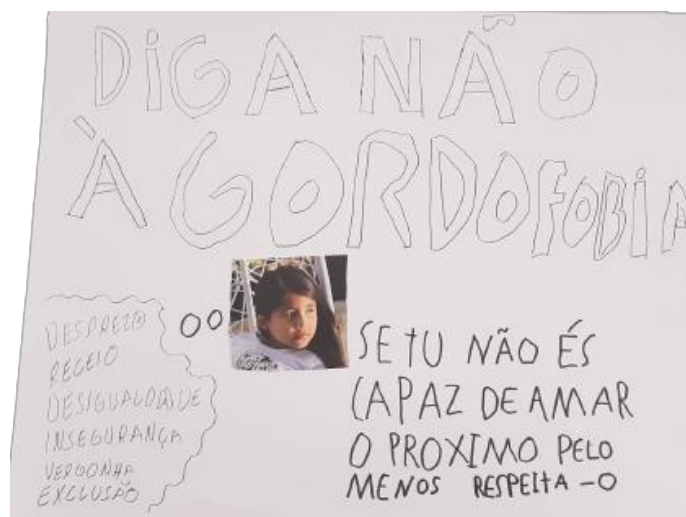 DIGA NÃO
À GORDOFOBIA
DESPREZO
RECEIO
DESIGUALDADE
INSEGURANÇA
VERGONHA
EXCLUSÃO
SE TU NÃO ÉS
CAPAZ DE AMAR
O PROXIMO PELO
MENOS RESPEITA-O